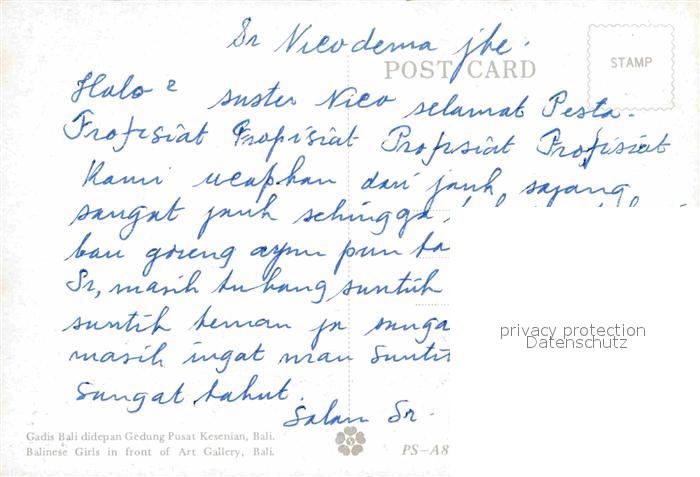 Sr Nicodema jbc.
POST CARD
STAMP
Halo² suster Nico selamat Pesta.
Profisiat Propisiat Profisiat Profisiat
Kami ucapkan dari jauh, sayang
sangat jauh sehingga
bau goreng ayam pun ta
Sr, masih tukang suntik
suntik teman ja
masih ingat mau suntik
sangat takut.
Salam Sr.
privacy protection
Datenschutz
Gadis Bali didepan Gedung Pusat Kesenian, Bali.
Balinese Girls in front of Art Gallery, Bali.
PS-A8